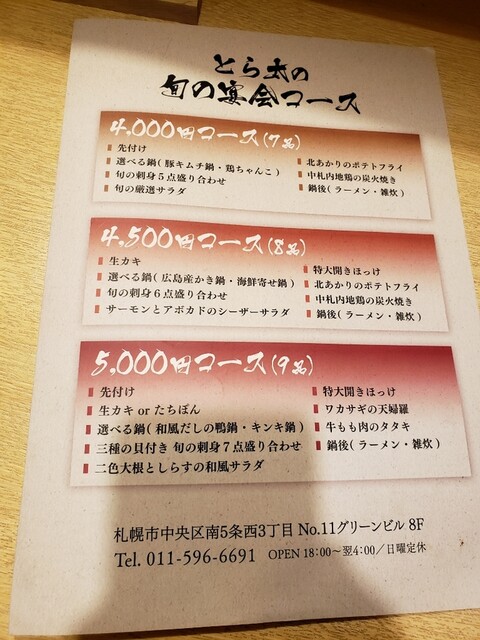 とら太の
旬の宴会コース
4,000円コース(7品)
先付け
選べる鍋(豚キムチ鍋・鶏ちゃんこ)
旬の刺身5点盛り合わせ
旬の厳選サラダ
北あかりのポテトフライ
中札内地鶏の炭火焼き
鍋後(ラーメン・雑炊)
4,500円コース(8品)
生カキ
選べる鍋(広島産かき鍋・海鮮寄せ鍋)
旬の刺身6点盛り合わせ
サーモンとアボカドのシーザーサラダ
特大開きほっけ
北あかりのポテトフライ
中札内地鶏の炭火焼き
鍋後(ラーメン・雑炊)
5,000円コース(9品)
先付け
生カキ or たちぽん
選べる鍋(和風だしの鴨鍋・キンキ鍋)
三種の貝付き 旬の刺身7点盛り合わせ
二色大根としらすの和風サラダ
特大開きほっけ
ワカサギの天婦羅
牛もも肉のタタキ
鍋後(ラーメン・雑炊)
札幌市中央区南5条西3丁目 No.11グリーンビル 8F
Tel. 011-596-6691 OPEN 18:00〜翌4:00/日曜定休